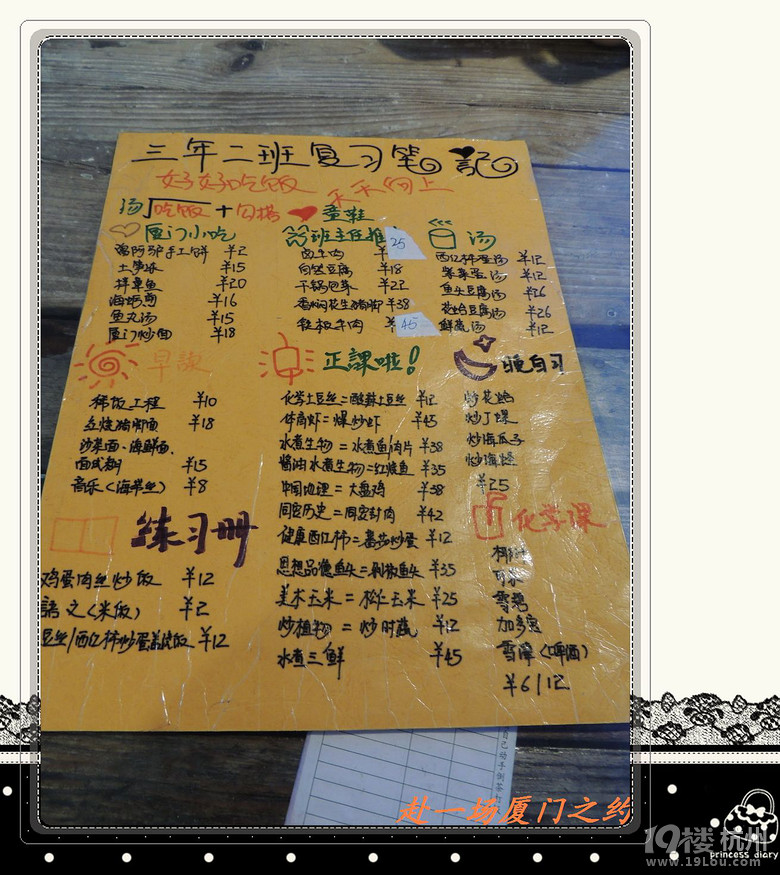 三年二班复习笔記
好好吃饭 天天向上
汤 吃饭+勾搭 童鞋
厦门小吃
¥2
土笋冻 ¥15
拌章鱼 ¥20
海蛎煎 ¥16
鱼丸汤 ¥15
厦门炒面 ¥18
班主任推 25
卤牛肉 ¥
自然豆腐 ¥18
干锅包菜 ¥22
香焖花生猪脚 ¥38
铁板牛肉 ¥45
汤
西红柿蛋汤 ¥12
紫菜蛋汤 ¥12
鱼头豆腐汤 ¥26
花蛤豆腐汤 ¥26
鲜蔬汤 ¥12
早課
稀饭工程 ¥10
红烧猪脚面 ¥18
沙茶面、海鲜面、
面式都 ¥15
音乐(海带丝) ¥8
练习册
鸡蛋肉丝炒饭 ¥12
語文(米饭) ¥2
豆丝/西红柿炒蛋盖浇饭 ¥12
正課啦!
化学土豆丝=酸辣土豆丝 ¥12
体育虾=爆炒虾 ¥45
水煮生物=水煮鱼/肉片 ¥38
酱油水煮生物=红烧鱼 ¥35
中国地理=大盘鸡 ¥38
同安历史=同安封肉 ¥42
健康西红柿=蕃茄炒蛋 ¥12
思想品德鱼头=剁椒鱼头 ¥35
美术玉米=松仁玉米 ¥25
炒植物=炒时蔬 ¥12
水煮三鲜 ¥45
晚自习
炒花蛤
炒丁螺
炒海瓜子
炒海蛏
¥25
化学课
椰汁
可乐
雪碧
加多宝
雪津(啤酒)
¥6/12
自己动手倒茶
赴一场厦门之约
19楼杭州
www.19Lou.com
princess diary